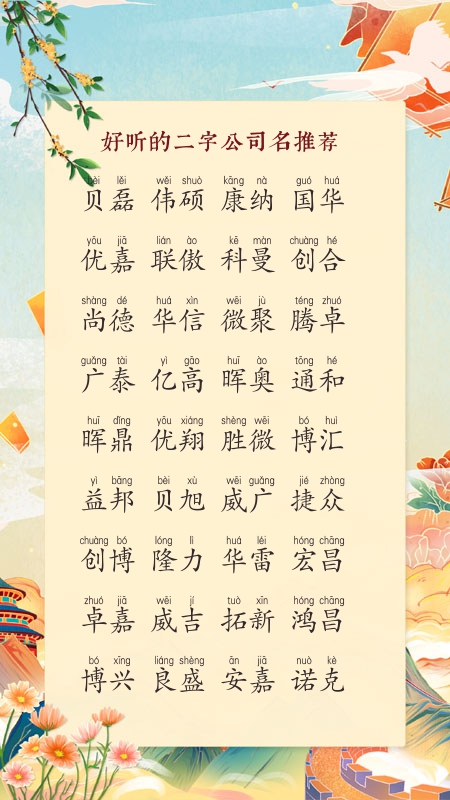 好听的二字公司名推荐
bèi lěi wěi shuò kāng nà guó huá
贝磊 伟硕 康纳 国华
yōu jiā lián ào kē màn chuàng hé
优嘉 联傲 科曼 创合
shàng dé huá xìn wēi jù téng zhuó
尚德 华信 微聚 腾卓
guǎng tài yì gāo huī ào tōng hé
广泰 亿高 晖奥 通和
huī dǐng yōu xiáng shèng wēi bó huì
晖鼎 优翔 胜微 博汇
yì bāng bèi xù wēi guǎng jié zhòng
益邦 贝旭 威广 捷众
chuàng bó lóng lì huá léi hóng chāng
创博 隆力 华雷 宏昌
zhuó jiā wēi jí tuò xīn hóng chāng
卓嘉 威吉 拓新 鸿昌
bó xīng liáng shèng ān jiā nuò kè
博兴 良盛 安嘉 诺克